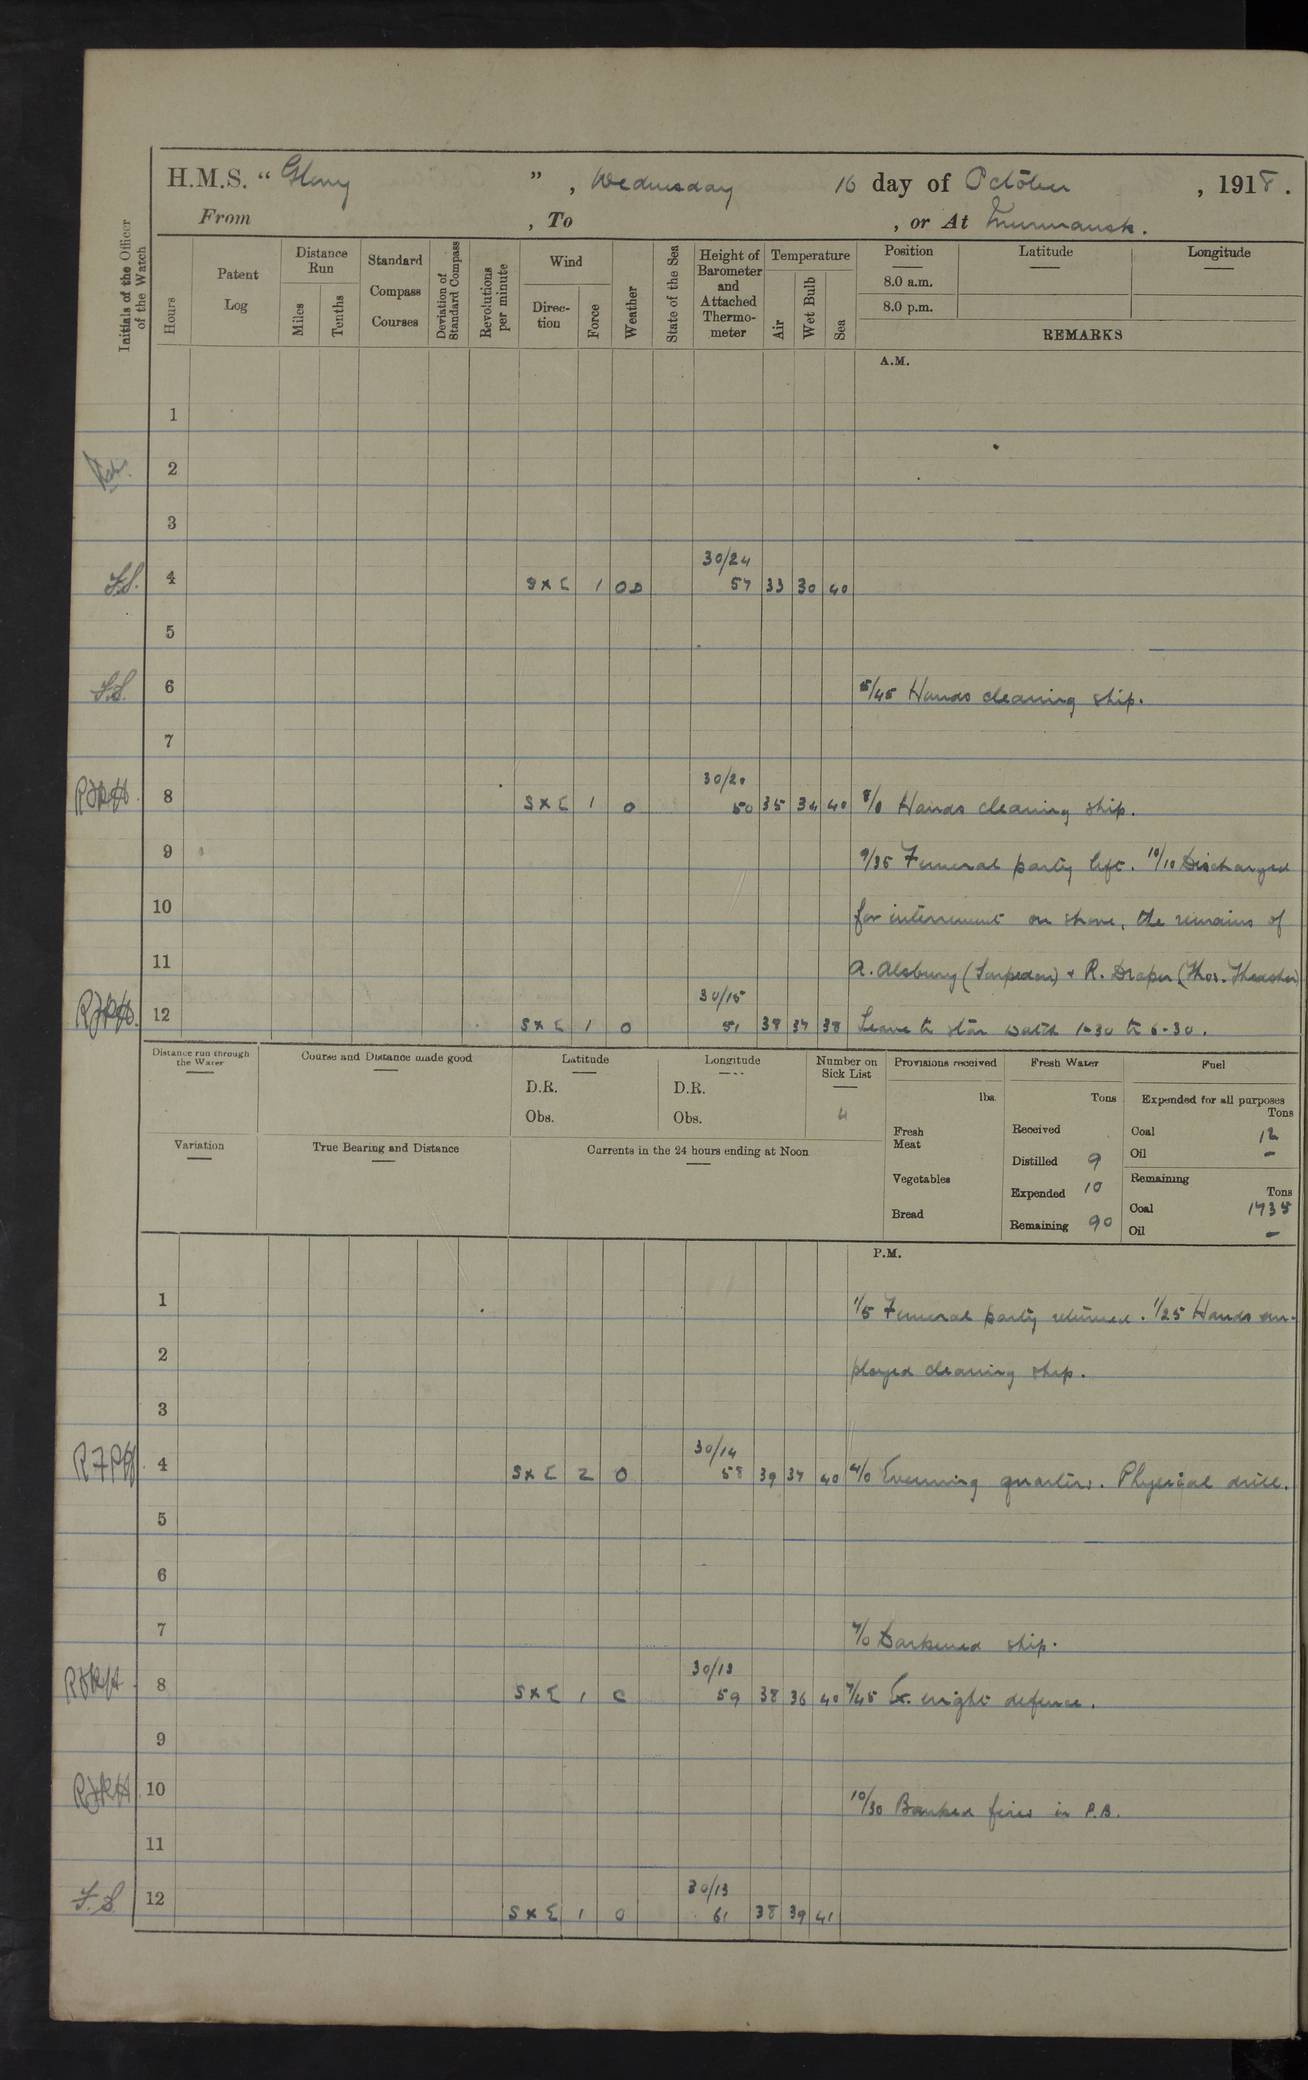 H.M.S. "Glory", Wednesday 16 day of October, 1918.
From , To , or At Murmansk.
Initials of the Officer of the Watch
Hours
Patent Log
Distance Run
Miles
Tenths
Standard Compass Courses
Deviation of Standard Compass
Revolutions per minute
Wind
Direction
Force
Weather
State of the Sea
Height of Barometer and Attached Thermometer
Temperature
Air
Wet Bulb
Sea
Position
Latitude
Longitude
8.0 a.m.
8.0 p.m.
REMARKS
A.M.
1
2
3
30/24
F.S. 4 S x E 1 OD 57 33 30 40
5
F.S. 6 5/45 Hands cleaning ship.
7
30/20
8 S x E 1 O 50 35 34 40 8/0 Hands cleaning ship.
9 9/35 Funeral party left. 10/10 Discharged
10 for internment on shore, the remains of
11 A. Alsbury (Torpedon) + R. Draper (Thos. Thrasher)
30/15
12 S x E 1 O 51 38 37 38 Leave to star watch 1-30 to 6-30.
Distance run through the Water
Course and Distance made good
Latitude
D.R.
Obs.
Longitude
D.R.
Obs.
Number on Sick List
4
Provisions received
lbs.
Fresh Meat
Vegetables
Bread
Fresh Water
Tons
Received
Distilled 9
Expended 10
Remaining 90
Fuel
Expended for all purposes
Tons
Coal 12
Oil –
Remaining
Tons
Coal 1735
Oil –
Variation
True Bearing and Distance
Currents in the 24 hours ending at Noon
P.M.
1 1/5 Funeral party returned. 1/25 Hands em-
2 ployed cleaning ship.
3
30/14
4 S x E 2 O 58 39 37 40 4/0 Evening quarters. Physical drill.
5
6
7 7/0 Darkened ship.
30/13
8 S x E 1 C 59 38 36 40 7/45 Ex. night defence.
9
10 10/30 Banked fires in P.B.
11
30/13
F.S. 12 S x E 1 O 61 38 39 41